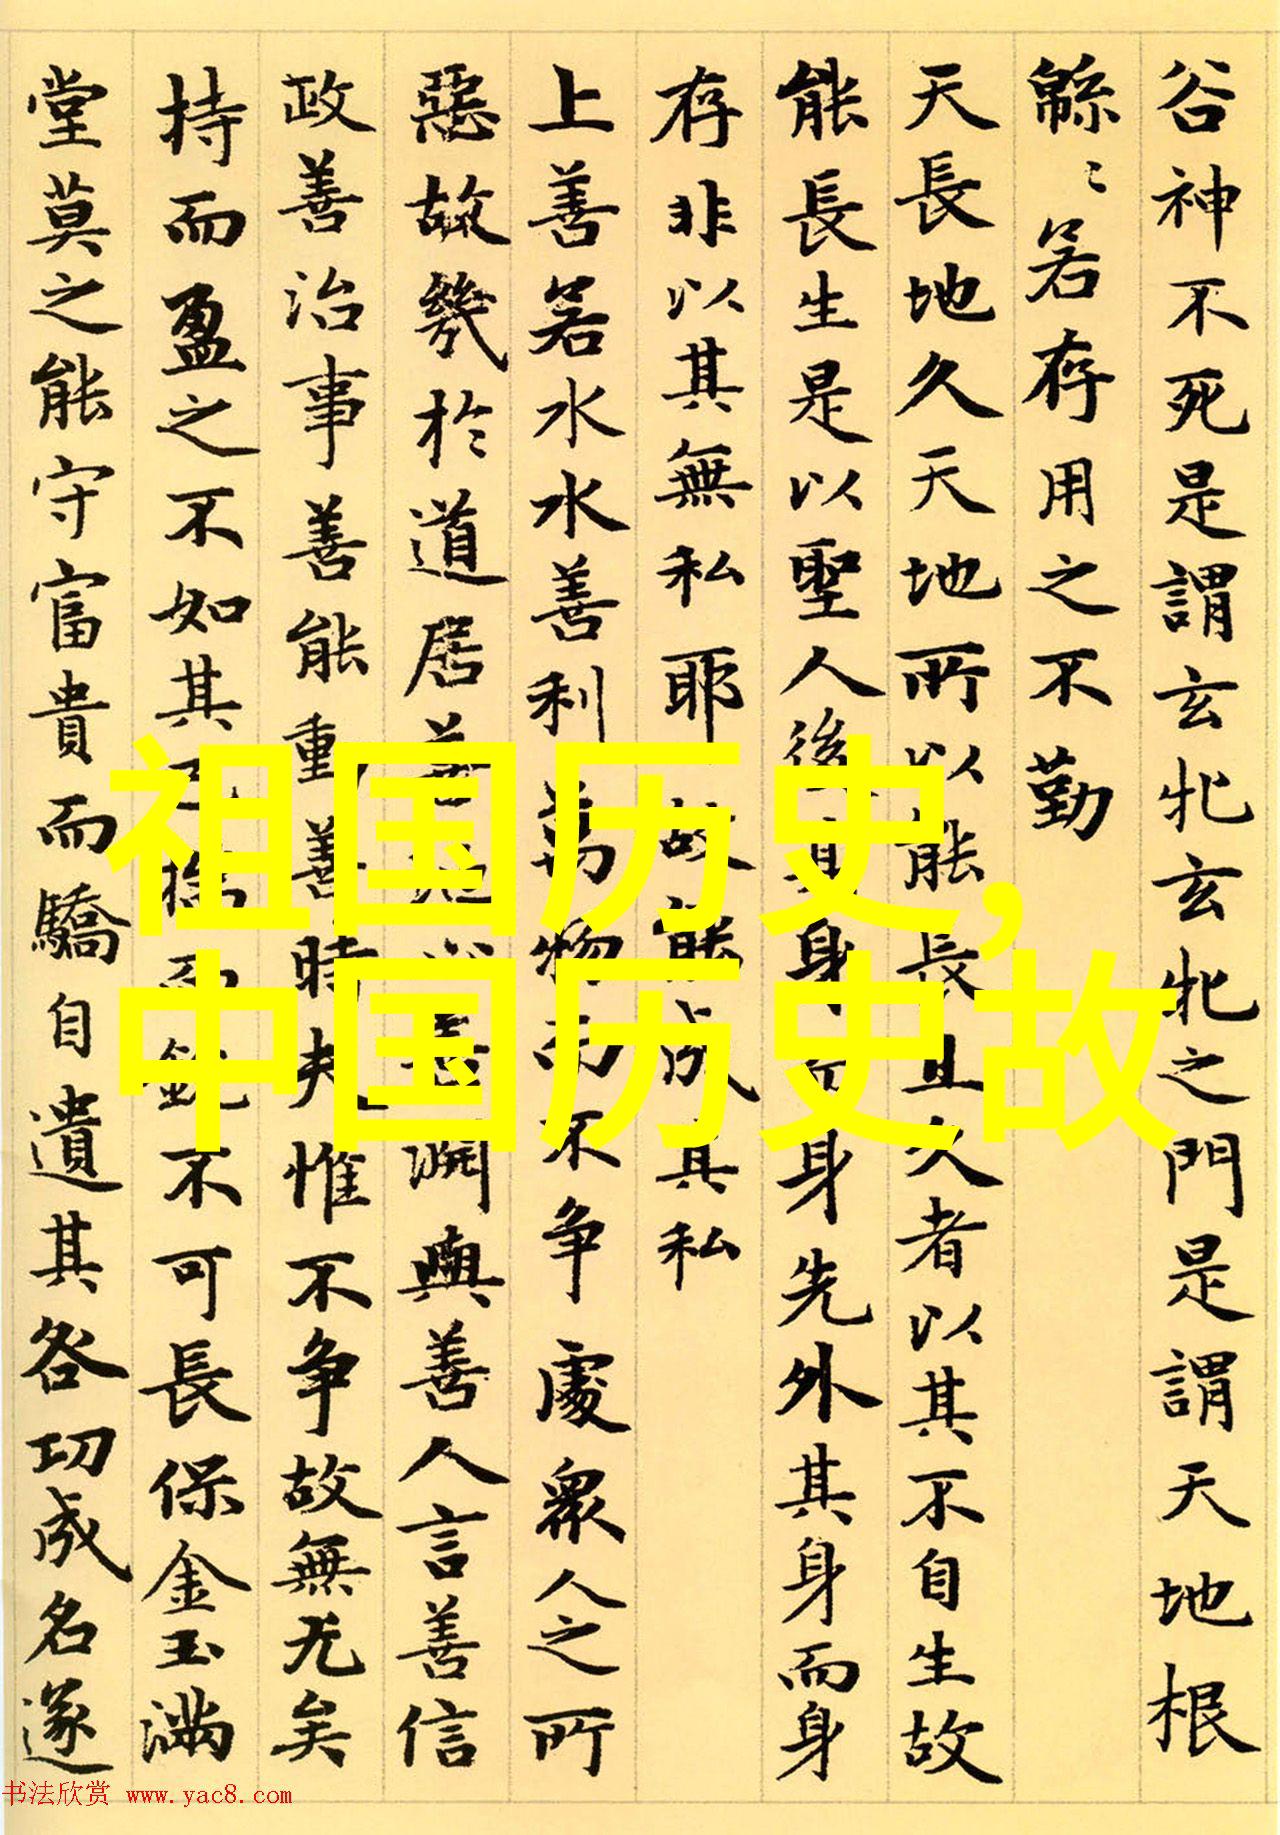 谷神不死是謂玄牝玄牝之門是謂天地根
緜〻若存用之不勤
天長地久天地所以能長且久者以其不自生故
能長生是以聖人後其身而身先外其身而身
存非以其無私耶故能成其私
上善若水水善利萬物而不争處衆人之所
惡故幾於道居善地心善淵與善人言善信
政善治事善能動善時夫惟不争故無尤矣
持而盈之不如其已揣而銳不可長保金玉滿
堂莫之能守富貴而驕自遺其咎功成名遂
祖国历史,
中国历史故
书法欣赏 www.yac8.com